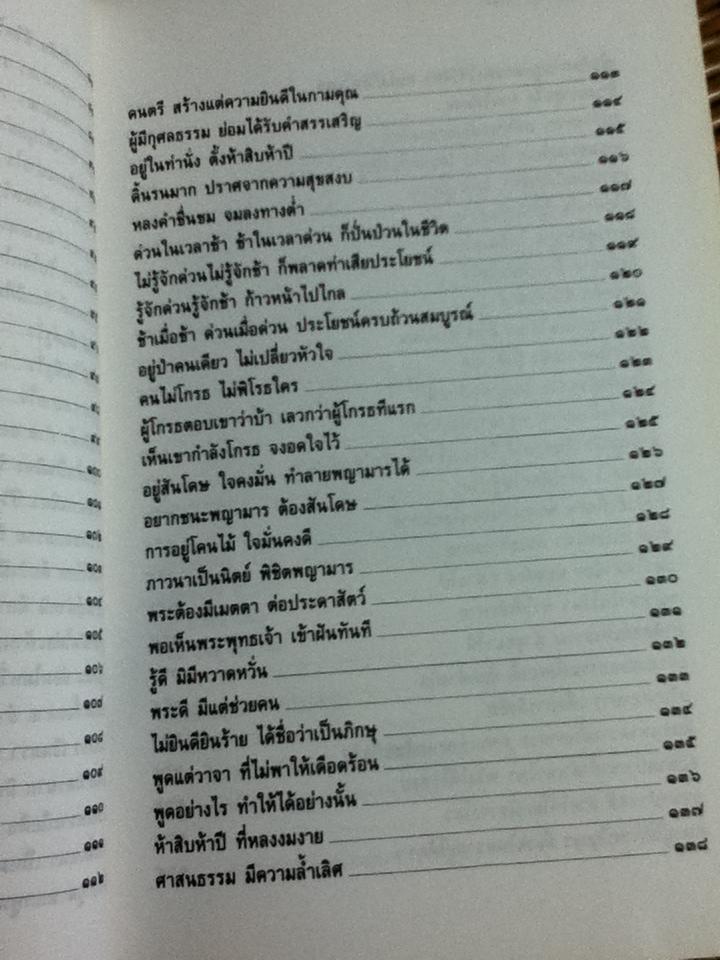 ๑๐๐
๑๐๑
๑๐๒
๑๐๓
๑๐๔
๑๐๕
๑๐๖
๑๐๗
๑๐๘
๑๐๙
๑๑๐
๑๑๑
๑๑๒
ดนตรี สร้างแต่ความยินดีในกามคุณ ๑๑๓
ผู้มีกุศลธรรม ย่อมได้รับคำสรรเสริญ ๑๑๔
อยู่ในท่านั่ง ตั้งห้าสิบห้าปี ๑๑๕
ดิ้นรนมาก ปราศจากความสุขสงบ ๑๑๖
หลงคำชื่นชม จมลงทางต่ำ ๑๑๗
ด่วนในเวลาช้า ช้าในเวลาด่วน ก็ปั่นป่วนในชีวิต ๑๑๘
ไม่รู้จักด่วนไม่รู้จักช้า ก็พลาดท่าเสียประโยชน์ ๑๑๙
รู้จักด่วนรู้จักช้า ก้าวหน้าไปไกล ๑๒๐
ช้าเมื่อช้า ด่วนเมื่อด่วน ประโยชน์ครบถ้วนสมบูรณ์ ๑๒๑
อยู่ป่าคนเดียว ไม่เปลี่ยวหัวใจ ๑๒๒
คนไม่โกรธ ไม่พิโรธใคร ๑๒๓
ผู้โกรธตอบเขาว่าบ้า เลวกว่าผู้โกรธทีแรก ๑๒๔
เห็นเขากำลังโกรธ จงอดใจไว้ ๑๒๕
อยู่สันโดษ ใจคงมั่น ทำลายพญามารได้ ๑๒๖
อยากชนะพญามาร ต้องสันโดษ ๑๒๗
การอยู่โคนไม้ ใจมั่นคงดี ๑๒๘
ภาวนาเป็นนิตย์ พิชิตพญามาร ๑๒๙
พระต้องมีเมตตา ต่อประดาสัตว์ ๑๓๐
พอเห็นพระพุทธเจ้า เข้าฝันทันที ๑๓๑
รู้ดี มิมีหวาดหวั่น ๑๓๒
พระดี มีแต่ช่วยคน ๑๓๓
ไม่ยินดียินร้าย ได้ชื่อว่าเป็นภิกษุ ๑๓๔
พูดแต่วาจา ที่ไม่พาให้เดือดร้อน ๑๓๕
พูดอย่างไร ทำให้ได้อย่างนั้น ๑๓๖
ห้าสิบห้าปี ที่หลงงมงาย ๑๓๗
ศาสนธรรม มีความล้ำเลิศ ๑๓๘